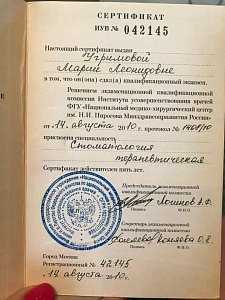 СЕРТИФИКАТ
ИУВ № 042145
Настоящий сертификат выдан
Угримовой
Марии Леонидовне
в том, что он(она) сдал(а) квалификационный экзамен.
Решением экзаменационной квалификационной
комиссии Института усовершенствования врачей
ФГУ «Национальный медико-хирургический центр
им. Н.И. Пирогова Минздравсоцразвития России»
от «14» августа 2010г. протокол №
присвоена специальность
Стоматология
терапевтическая
Сертификат действителен пять лет.
Председатель экзаменационной
квалификационной комиссии
Подпись
Секретарь экзаменационной
квалификационной комиссии
Подпись
Город Москва
Регистрационный № 42145
14 августа 2010г.